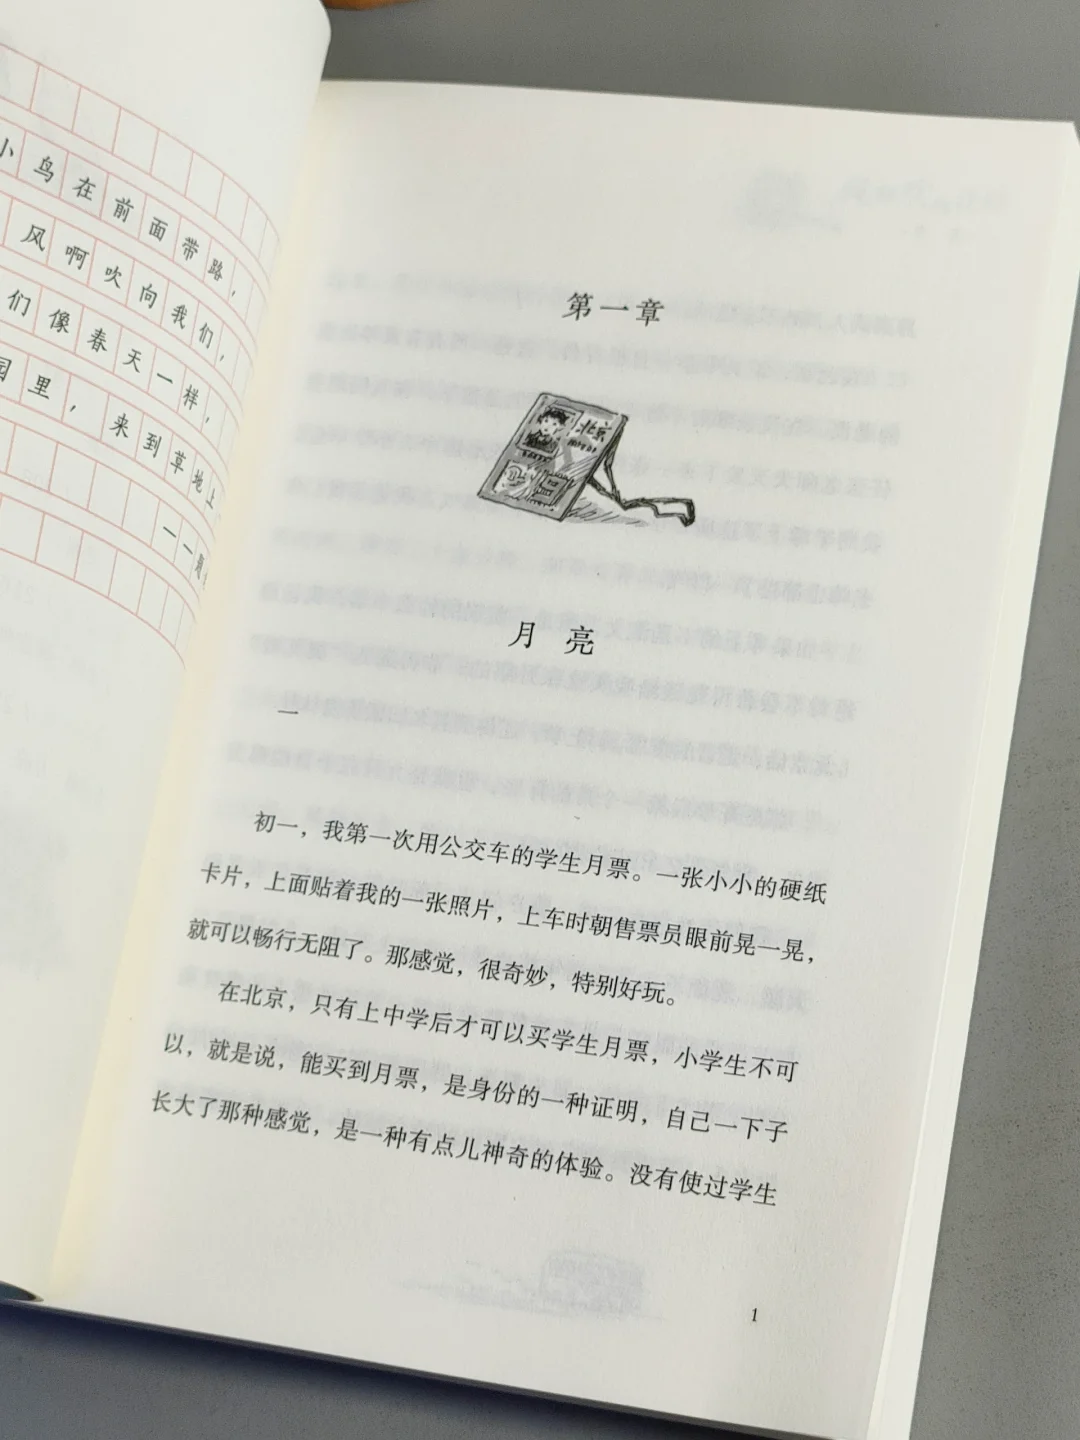 小鸟在前面带路，
风啊吹向我们，
们像春天一样，
园里，来到草地上
第一章
北京
月亮
一
初一，我第一次用公交车的学生月票。一张小小的硬纸
卡片，上面贴着我的一张照片，上车时朝售票员眼前晃一晃，
就可以畅行无阻了。那感觉，很奇妙，特别好玩。
在北京，只有上中学后才可以买学生月票，小学生不可
以，就是说，能买到月票，是身份的一种证明，自己一下子
长大了那种感觉，是一种有点儿神奇的体验。没有使过学生
1